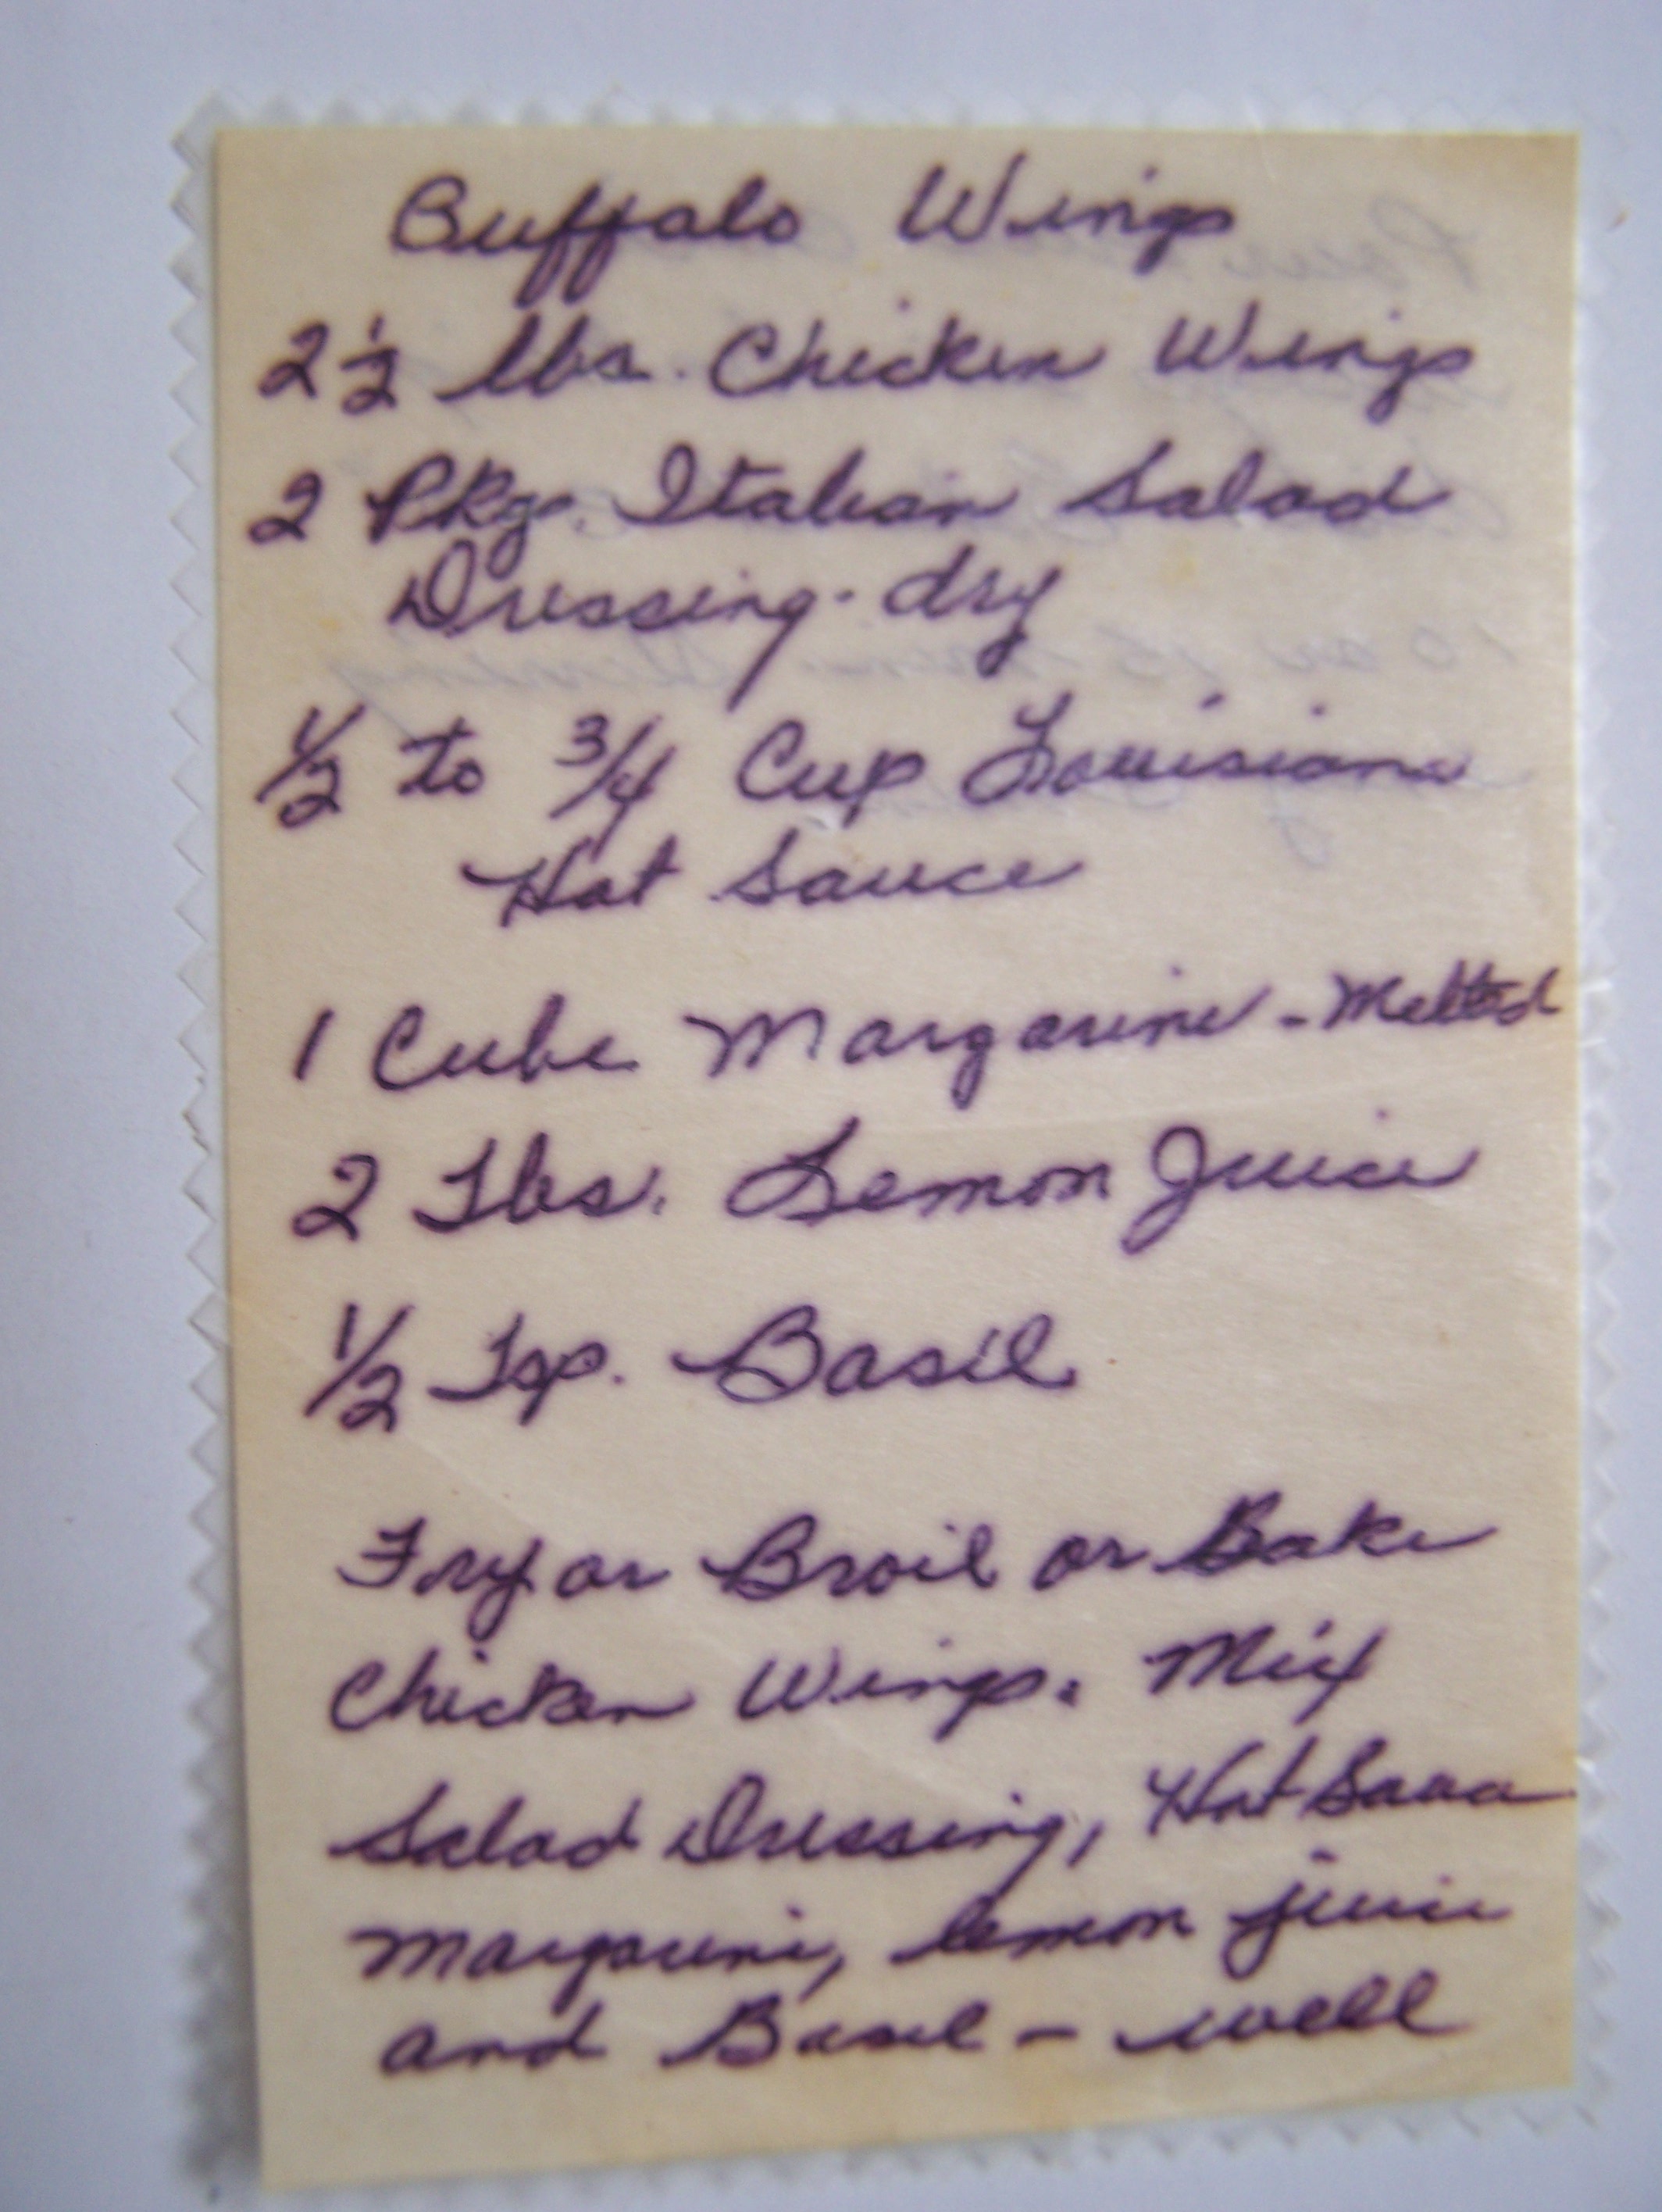 Buffalo Wings
2 1/2 lbs. Chicken Wings
2 Pkg. Italian Salad
Dressing - dry
1/2 to 3/4 Cup Louisiana
Hot Sauce
1 Cube Margarine - Melted
2 Tbs. Lemon Juice
1/2 Tsp. Basil
Fry or Broil or Bake
Chicken Wings. Mix
Salad Dressing, Hot Sauce
Margarine, lemon juice
and Basil - well